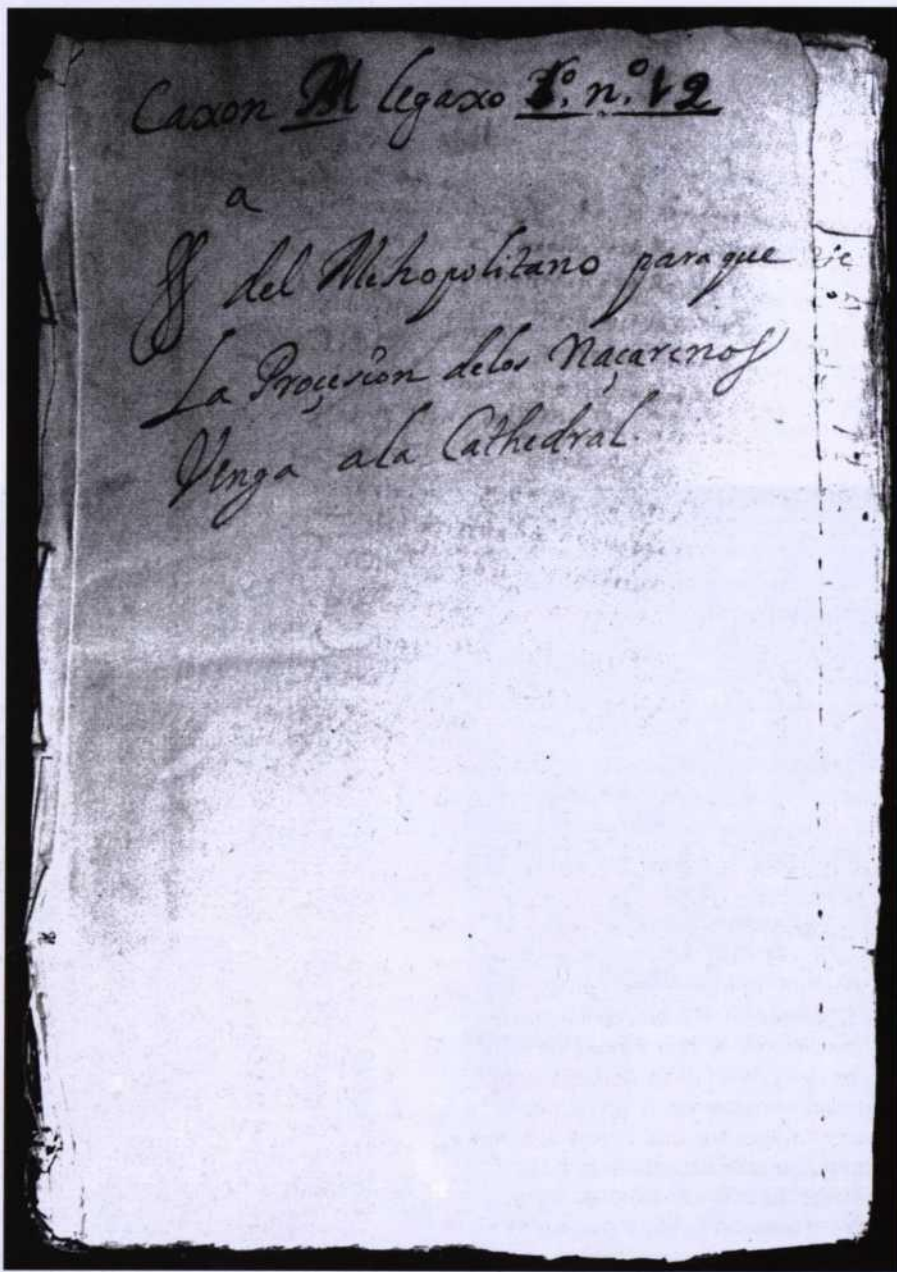 Caxon M legaxo 1º. n.º 12
a
ſſ del Metropolitano para que
La Proçesion delos Naçarenos
Venga ala Cathedral